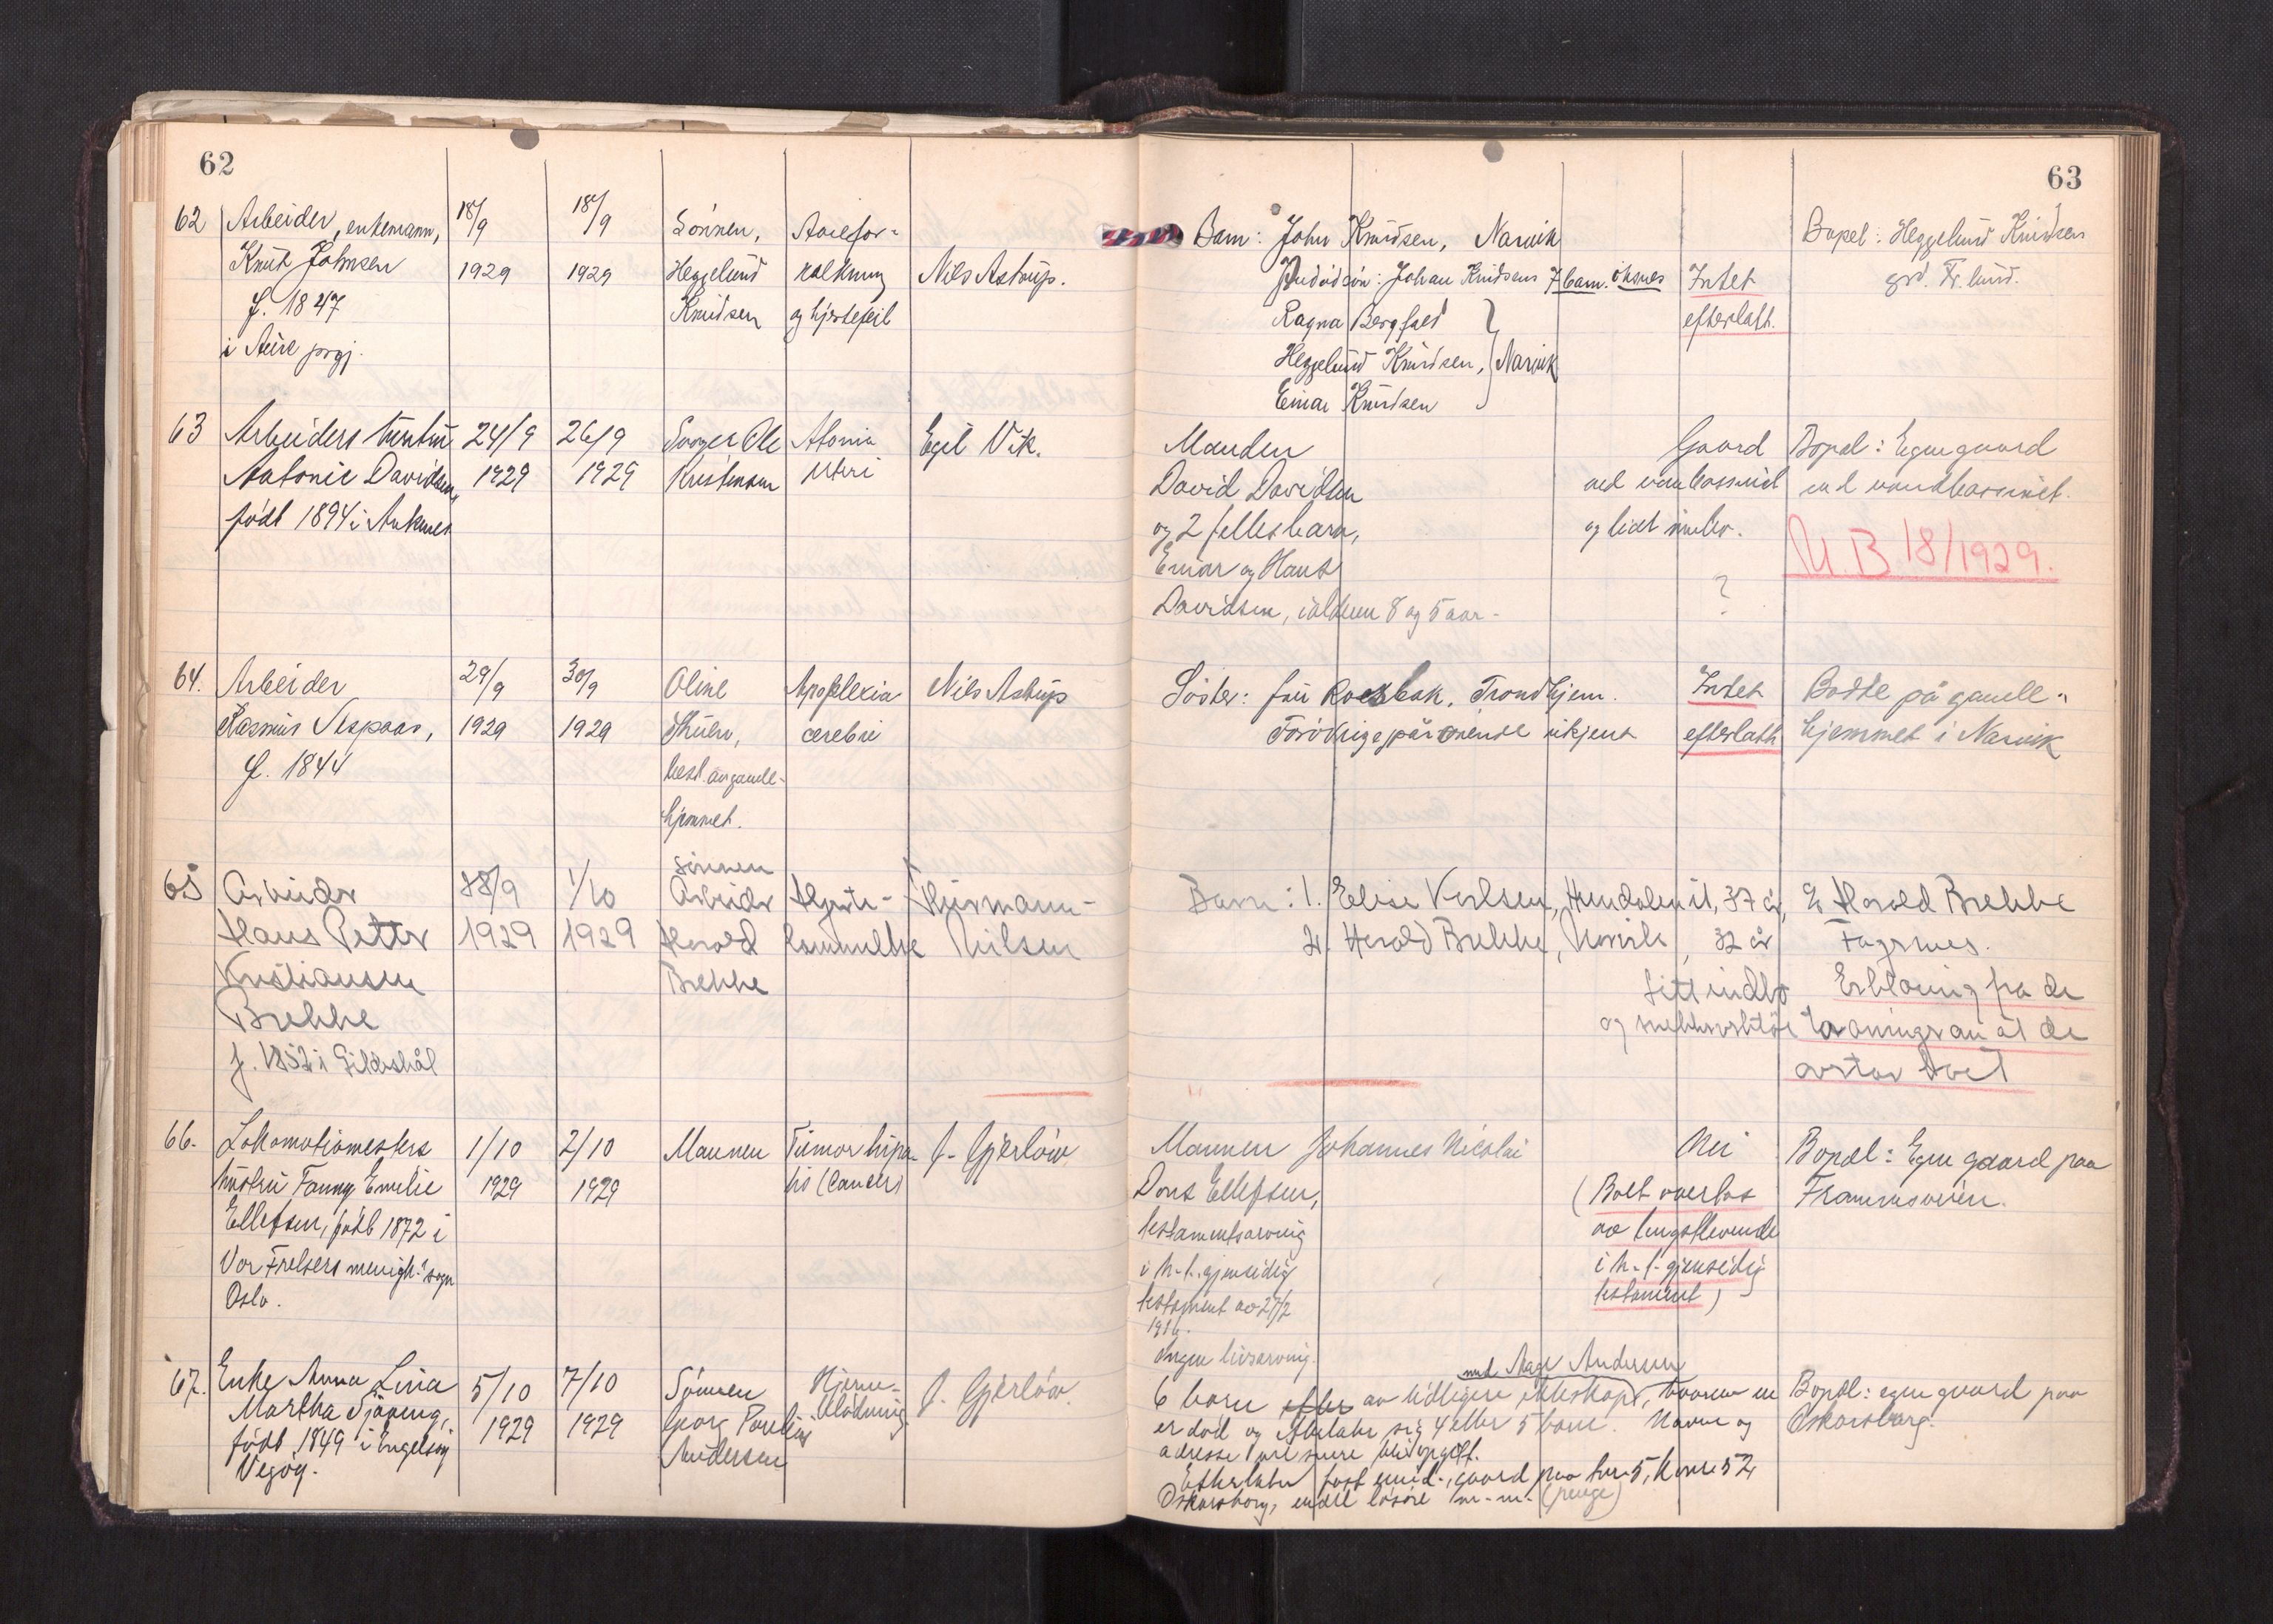 62
62 Arbeider, enkemann, 18/9 18/9 Sönnen, Aarefor-
Knut Johnsen 1929 1929 Heggelund kalkning Nils Astrup.
f. 1847 Knudsen og hjertefeil
i Aure prgj.
63 Arbeiders hustru 24/9 26/9 Svoger Ole Atonia Egil Vik.
Antonie Davidsen, 1929 1929 Kristensen uteri
født 1894 i Ankenes
64. Arbeider 29/9 30/9 Oline Apoplexia Nils Astrup
Rasmus 1929 1929 cerebri
f. 1844 best. av gamle-
hjemmet.
sönnen
65 Arbeider 28/9 1/10 Arbeider Hjerte- Thurmann-
Hans Petter 1929 1929 Harald lammelse Nilsen
Kristiansen Brekke
Brekke
f. 1852 i Gildeskål
66. Lokomotivmesters 1/10 2/10 Mannen Tumor hepa- J. Gjerlöw
hustru Fanny Emilie 1929 1929 tis (Cancer)
Ellefsen, født 1872 i
Vor Frelsers menigh. sogn
Oslo.
67. Enke Anna Lina 5/10 7/10 Sönnen Hjerne- J. Gjerlöw.
Martha Sjåeng, 1929 1929 Georg Paulius blödning
født 1849 i Engelsöy Andersen
Vegöy.
63
Barn: John Knudsen, Narvik Bopel: Heggelund Knudsen
Död sön: Johan Knudsens 7 barn. Öksnes Intet grd. Fr. lund.
Ragna Bergfald efterlatt.
Heggelund Knudsen, Narvik
Einar Knudsen
Manden Gaard Bopæl: Egen gaard
David Davidsen ved vandbassinet ved vandbassinet.
og 2 fellesbarn, og lidt innbo. N.B. 18/1929.
Einar og Hans ?
Davidsen, i alderen 8 og 5 aar.
Söster: fru Rosbak, Trondhjem. Intet Bodde på gamle-
Forövrig pårörende ukjent efterlatt hjemmet i Narvik
Barn: 1. Elise Karlsen, 37 år, Harald Brekke
2. Harald Brekke, Narvik, 32 år Fagernes.
Litt indbo Erklæring fra de
og snekkerverktöi arvinger at de
overtar boet
Mannen Johannes Nicolai Nei Bopæl: Egen gaard paa
Dons Ellefsen, (Boet overtas Framnesveien.
testamentsarving av lengstlevende
i h.t. gjensidig i h.t. gjensidig
testament av 27/2 testament)
1916.
Ingen livsarving.
med Aage Andersen
6 barn efter av tidligere ekteskap, hvorav en Bopæl: egen gaard paa
er död og efterlater sig 4 eller 5 barn. Navne og Oskarsborg.
adresse vil senere bli opgitt.
Efterlater fast eiend., gaard paa 5, 52
Oskarsborg, endel lösöre m.m. (penge)